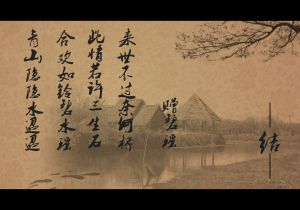 青山隐隐水迢迢
合欢如铃碧水瑶
此情若许三生石
来世不过奈何桥
赠碧瑶
结